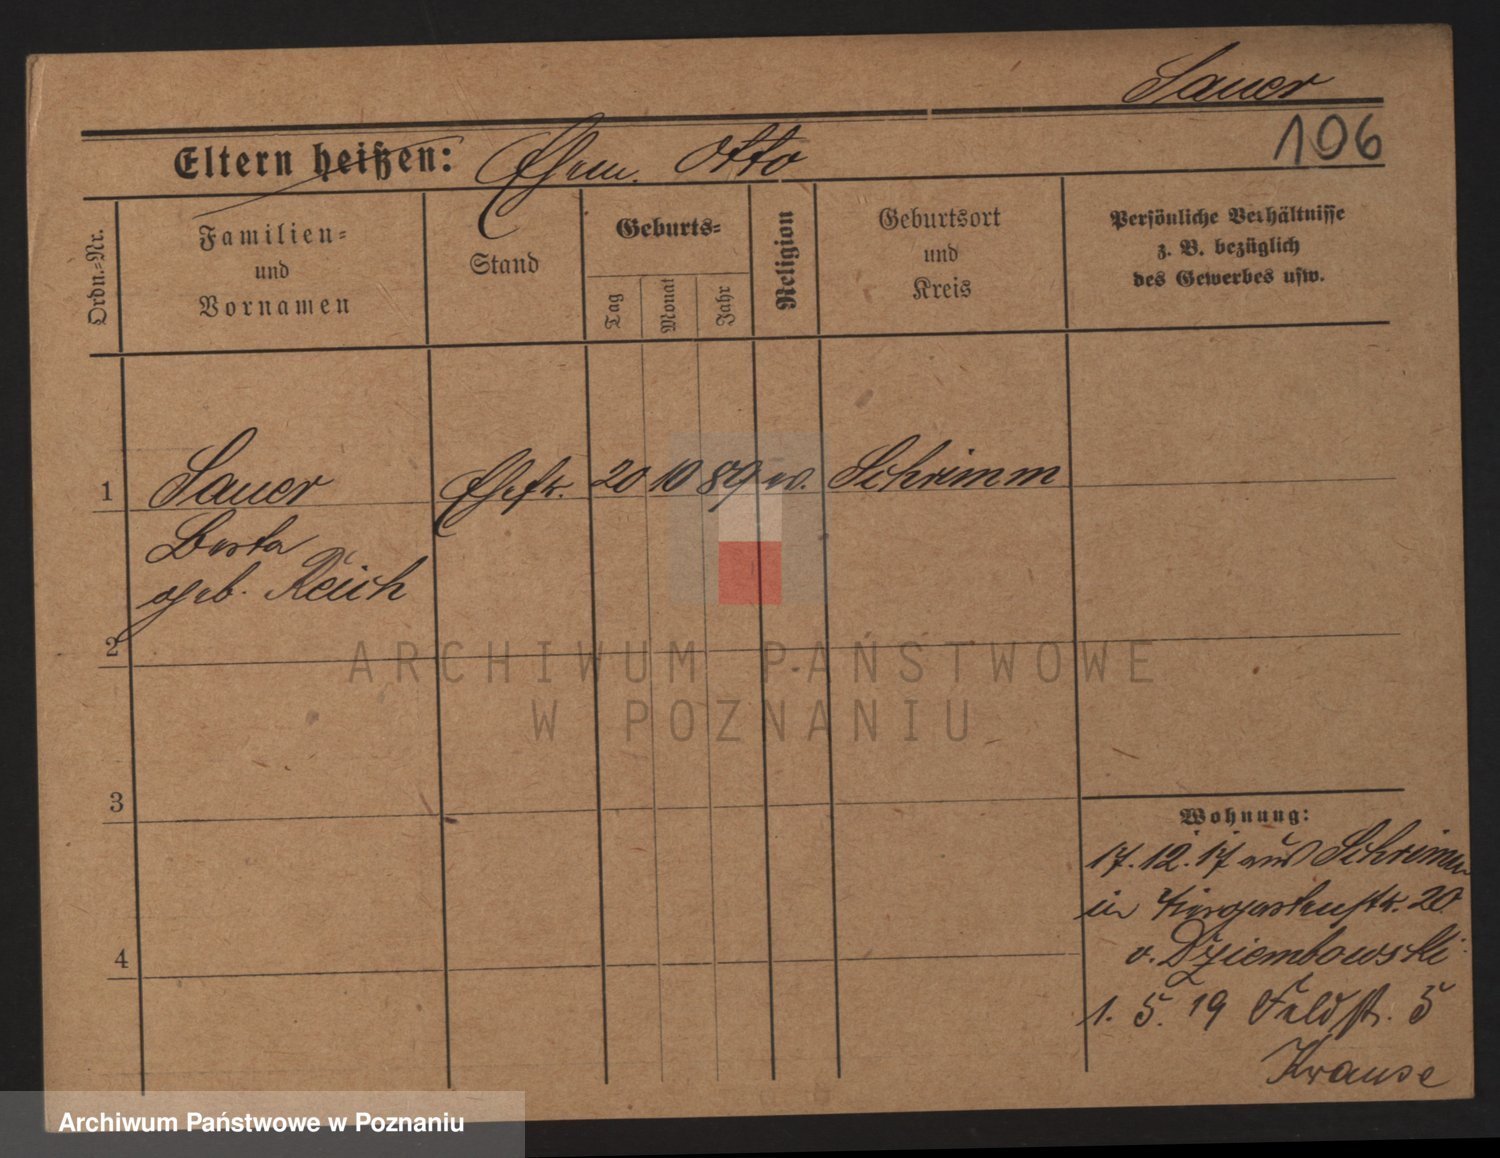 Sauer
106
Eltern heißen: Ehem. Otto
Ordn.-Nr.
Familien-
und
Vornamen
Stand
Geburts-
Tag
Monat
Jahr
Religion
Geburtsort
und
Kreis
Persönliche Verhältnisse
z. B. bezüglich
des Gewerbes usw.
1 Sauer Ehefr. 20 10 89 ev. Schrimm
Berta
geb. Reich
2
ARCHIWUM PAŃSTWOWE
W POZNANIU
3
Wohnung:
17.12.17 aus Schrimm
in Tiergartenstr. 20
v. Dziembowski
4
1. 5. 19 Feldstr. 5
Krause
Archiwum Państwowe w Poznaniu